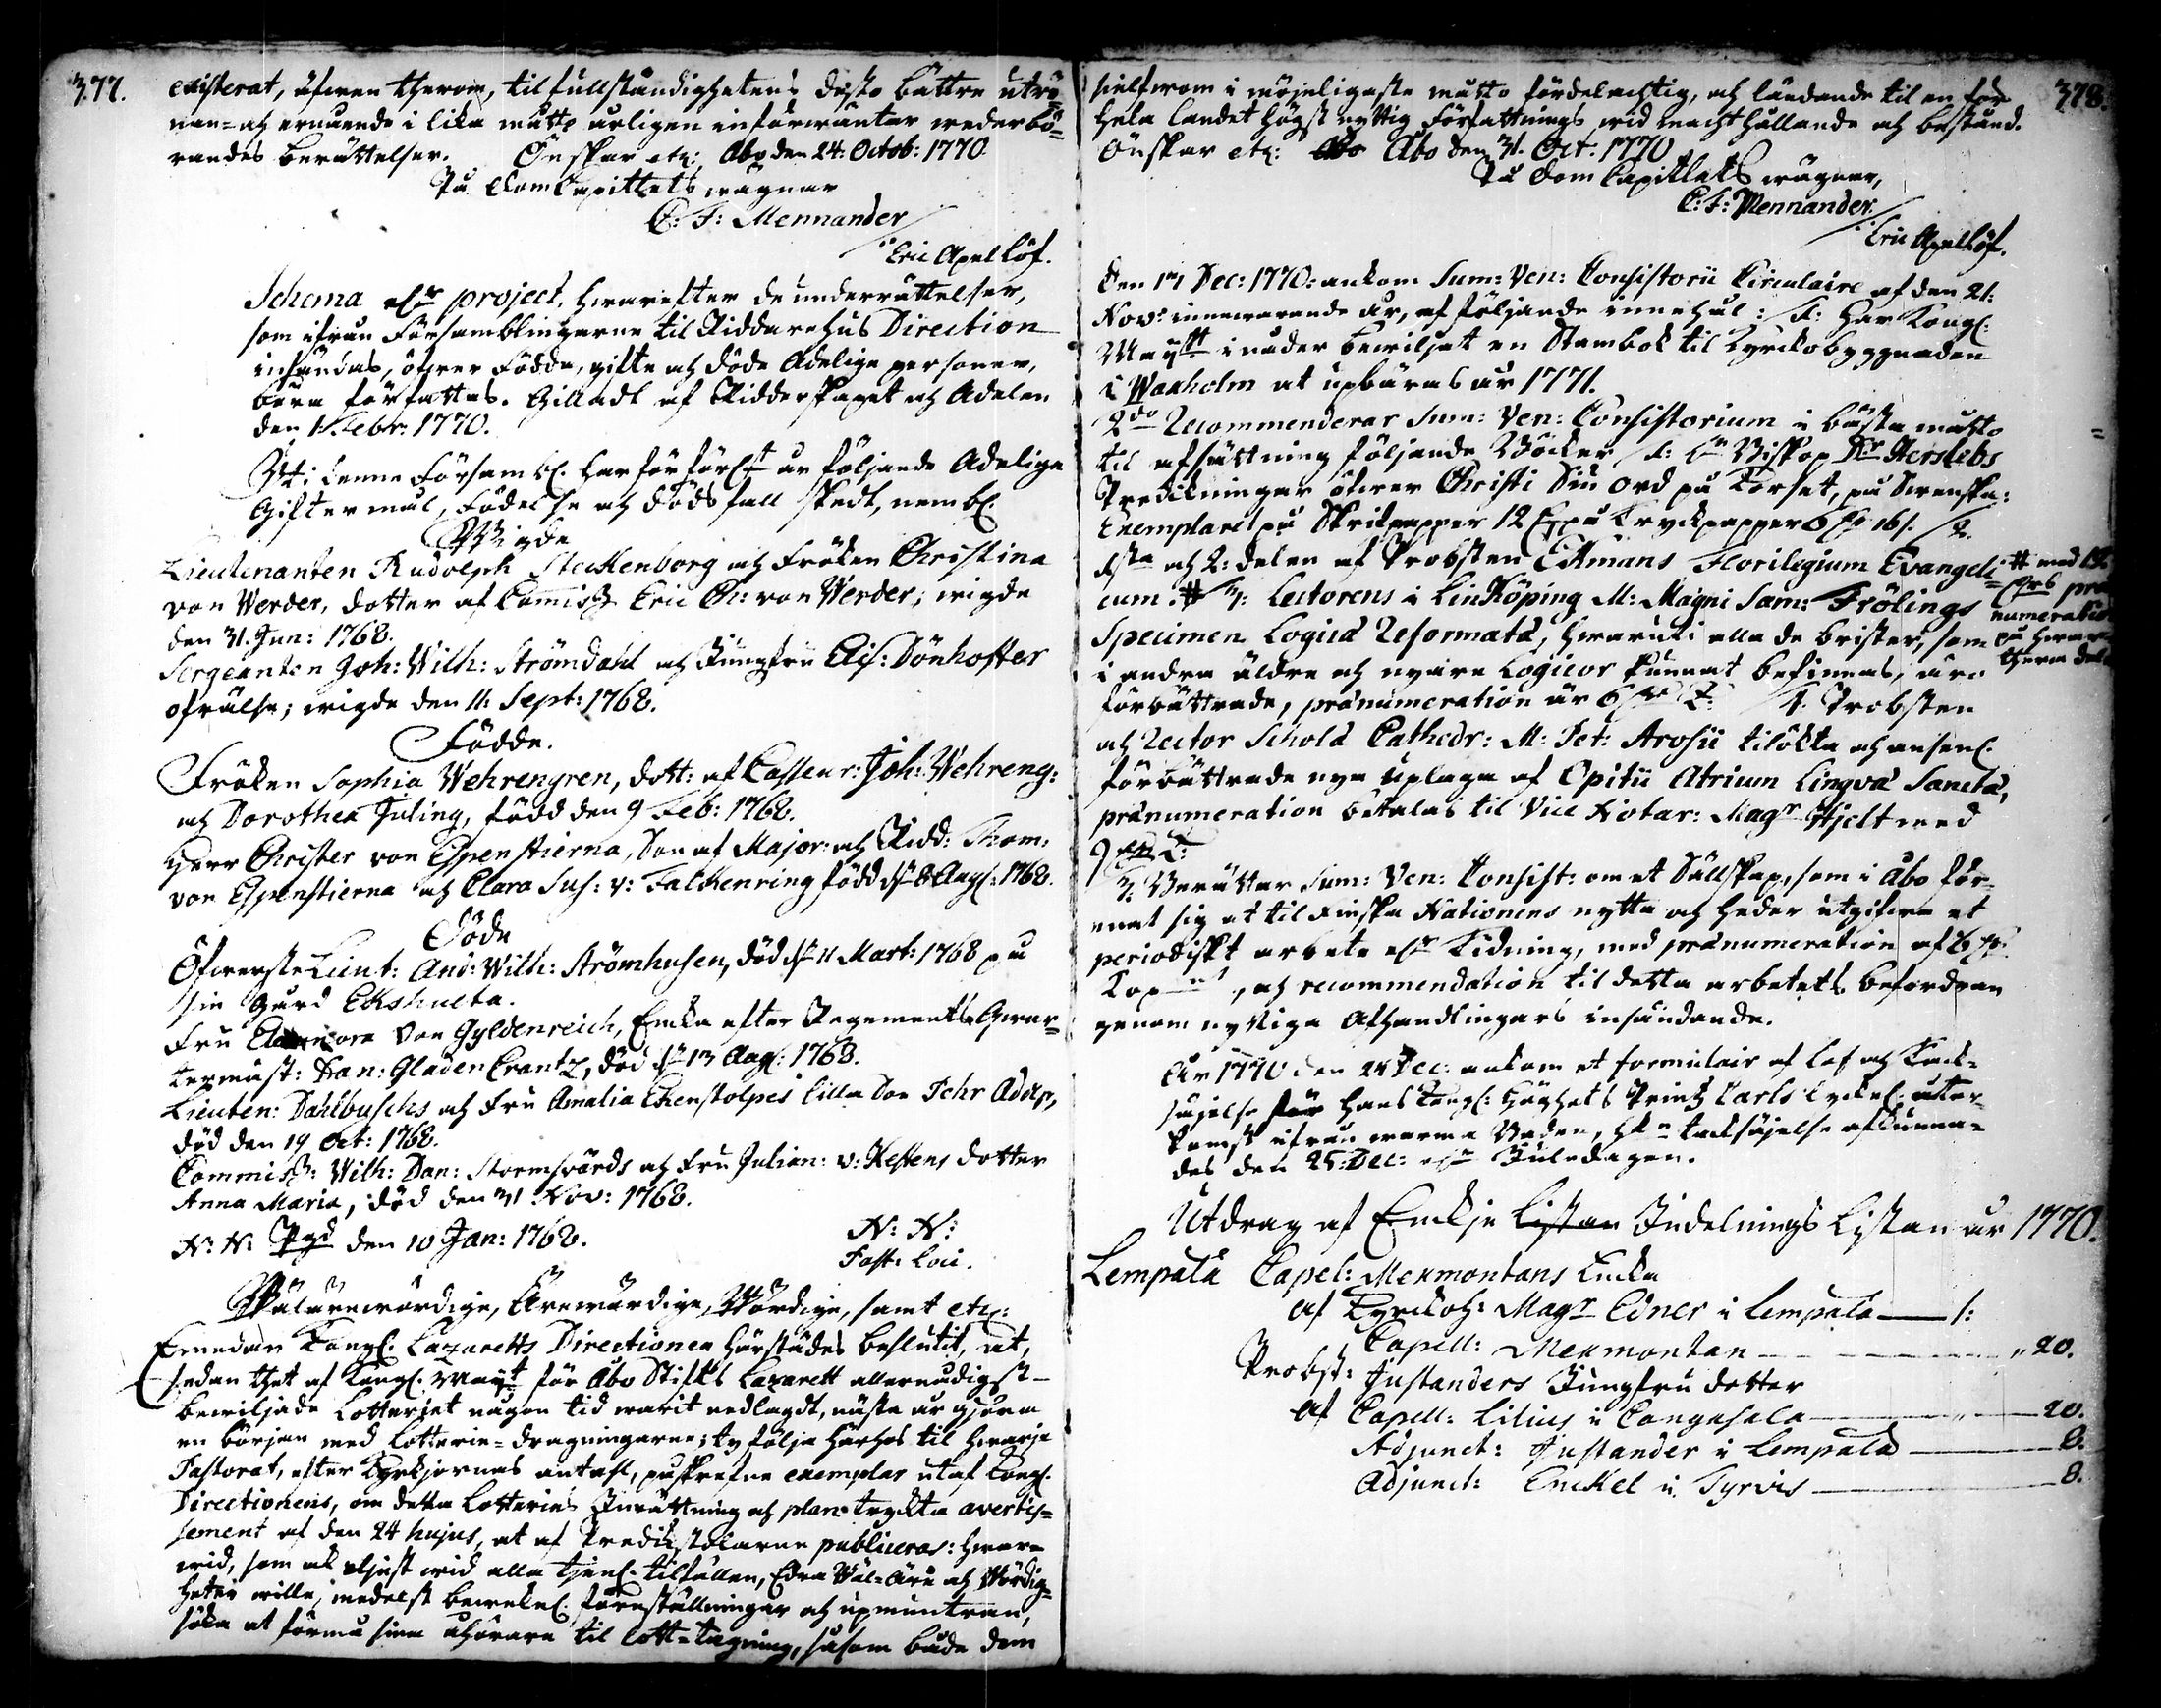 377.
existerat, äfwen therom, til fullständighetens desto bättre utrö-
nan- och ernående i lika måtto årligen inforwänter wederbö-
randes berättelser. Önskar etc: Åbo den 24. Octob: 1770.
På DomCapittlets wägnar
C: F: Mennander
Eric Apellöf.
Schema elr project, hwarefter de underrättelser,
som ifrån Församblingarne til Riddarehus Direction
insändas, öfwer Födde, gifte och döde Adelige personer,
böra författas. Gilladt af Ridderskapet och Adelen
den 1 Febr: 1770.
Uti denna Försambl. har förförl:t år följande Adelige
Giftermål, Födelse och dödsfall skedt, nembl.
Wigde
Lieutenanten Rudolph Steckenborg och Fröken Christina
von Werder, dotter af Commiss. Eric Ch: von Werder; wigde
den 31. Jan: 1768.
Sergeanten Joh: Wilh: Strömdahl och Jungfru Elis: Dönhofter
ofrälse; wigde den 11. Sept: 1768.
Födde.
Fröken Sophia Wehrengren, dott: af Casseur: Joh: Wehreng:
och Dorothea Juling, född den 9 Feb: 1768.
Herr Christer von Espenstierna, Son af Major: och Ridd: Thom:
von Espenstierna och Clara Sus: v: Falckenring född d. 8 Aug: 1768.
Döde
ÖfwersteLieut: And: Wilh: Strömhusen, död d. 11 Mart: 1768 på
sin gård Ekshulta.
Fru Eleonora von Gyldenreich, Enka efter Regements Qwar-
termäst: Dan: GladenCrantz, död d. 13 Aug: 1768.
Lieuten: Dahlbuschs och Fru Amalia Ekenstolpes lilla Son Fehr Adolp,
död den 19 Oct: 1768.
Commiss: Wilh: Dan: Stormswärds och Fru Julian: v: Kestens dotter
Anna Maria, död den 31 Nov: 1768.
N: N: Pgd den 10 Jan: 1768. N: N:
Past: Loci.
Wälärewördige, Ärewärdige, Wördige, samt etc:
Emedan Kongl. Lazaretts Directionen härstädes beslutit, at,
sedan thet af Kongl. Mayt för Åbo Stifts Lazarett allernådigst
bewiljade Lotteriet någon tid warit nedlagdt, nästa år gjöra
en början med Lotterie-dragningarne; ty följa härhos til hwarje
Pastorat, efter Kyrkjornas antahl, påskrefne exemplar utaf Kongl.
Directionens, om detta Lotteries Inrättning och plan tryckta avertis-
sement af den 24 hujus, at af Predikstolarne publiceras: hwar-
wid, som ock eljest wid alla tjenl. tilfällen, Edra Wäl-Äre och Wördig-
heter wille, medelst bewekel. föreställningar och upmuntran,
söka at förmå sina åhörare til lott-tagning, såsom både dem
378.
sielfwom i möjeligaste måtto fördelachtig, och ländande til en för
hela landet högst nyttig Författnings wid macht hållande och bestånd.
Önskar etc: Åbo den 31. Oct: 1770
På Dom Capitlets wägnar,
C: F: Mennander.
Eric Apellöf.
Den 17 Dec: 1770: ankom Sum: Ven: Consistorii Circulaire af den 21:
Nov: innewarande år, af följande innehål: 1: Har Kongl:
Maytt i nåder bewiljat en Stambok til Kyrckobyggnaden
i Waxholm at upbäras år 1771.
2do Recommenderar Sum: Ven: Consistorium i bästa måtto
til afsättning följande Böcker 1: Biskop Dr Herslebs
Predikningar öfwer Christi Siu Ord på Korset, på Swenska:
Exemplaret på Skrifpapper 12 på Tryckpapper 6 16 /. 2.
1sta och 2: delen af Probsten Ekmans Florilegium Evangeli-
cum. # 3: Lectorens i LinKöping M: Magni Sam: Frölings
# med
pränumeratio
på hwar
thera del
Specimen Logicæ Reformatæ, hwaruti alla de brister, som
i andra äldre och nyare Logicor kunnat befinnas, äro
förbättrade, pränumeration är 6 4: Probsten
och Rector Scholæ Cathedr: M: Pet: Arosii tilökta och ansenl.
förbättrade nya uplaga af Opitii Atrium Lingvæ Sanctæ,
pränumeration betalas til Vice Notar: Magr Hjelt med
9
3. Berättar Sum: Ven: Consist: om et Sällskap, som i Åbo för-
enat sig at til Finska Nationens nytta och heder utgifwa et
periodiskt arbete elr Tidning, med pränumeration af 6
Kopmt, och recommendation til detta arbetets befordran
genom nyttiga Afhandlingars insändande.
År 1770 den 24 Dec: ankom et formulair af lof och Tack-
säjelse för Hans Kongl: Höghets Printz Carls lyckel: åter-
komst ifrån warma Baden, hkn tacksäjelse afkunna-
des den 25: Dec: elr Juledagen.
Utdrag af Enckje Listan Indelnings Listan år 1770.
Lempälä Capel: Mexmontans Encka
af Kyrckoh: Magr Edner i Lempälä — 1:
Capell: Mexmontan — " 20.
Probst: Justanders Jungfru dotter
Af Capell: Lilius i Cangasala — " — 20.
Adjunct: Justander i Lempälä — 8.
Adjunct: Enckel i Tyrvis — 8.